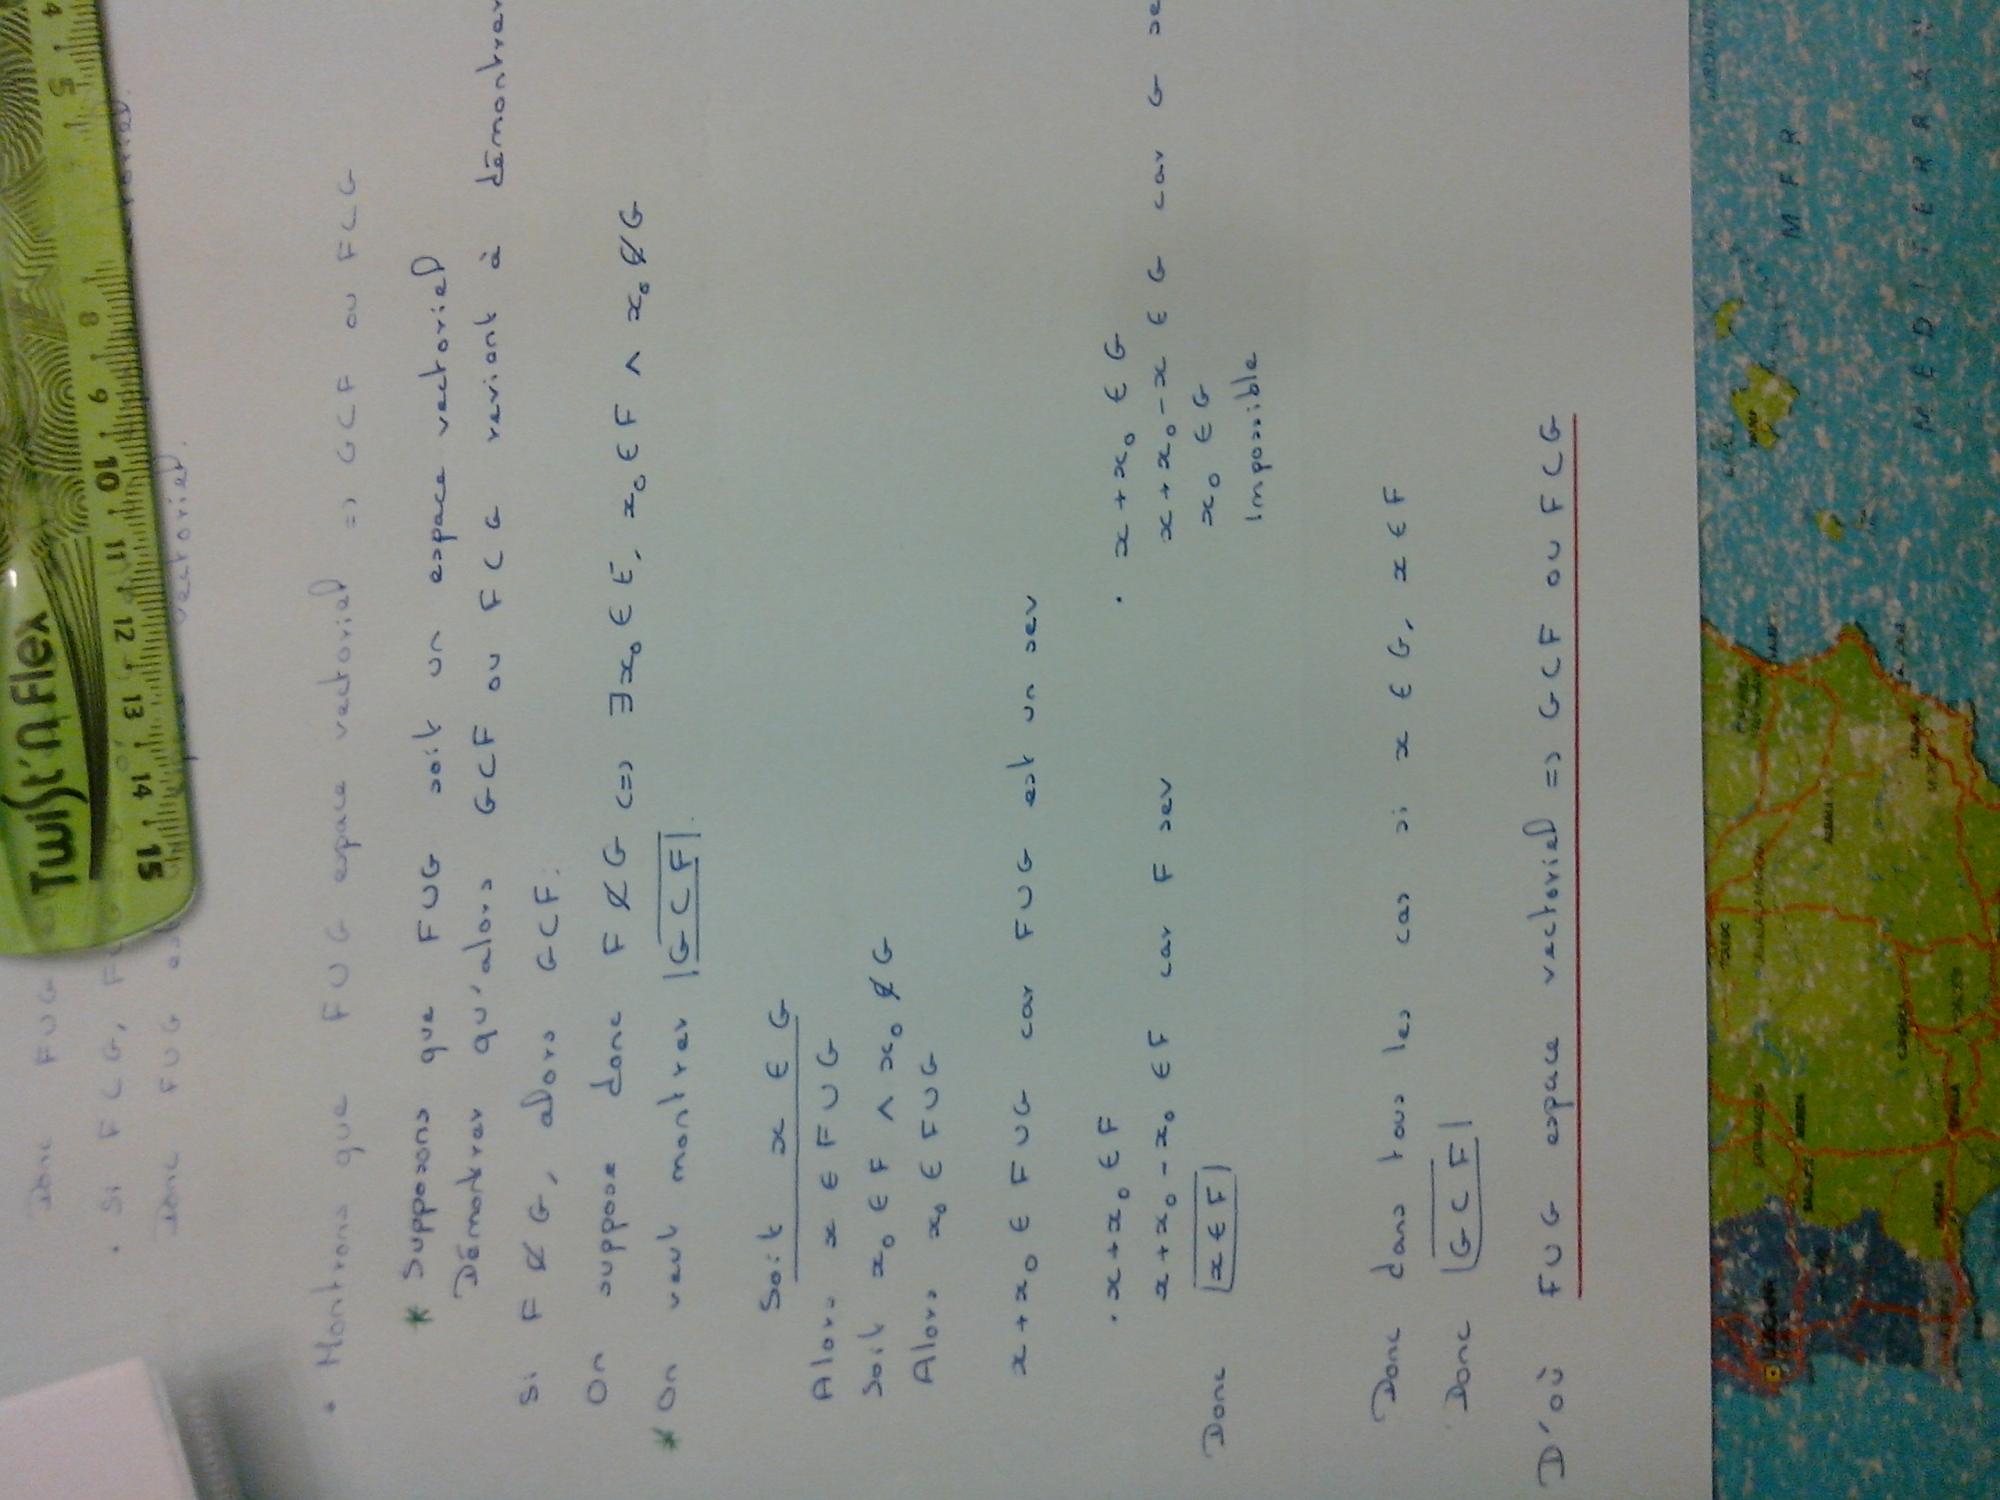 Donc FUG
• Si F⊂G, F
Donc FUG es vectoriel.
• Montrons que FUG espace vectoriel => G⊂F ou F⊂G
* Supposons que FUG soit un espace vectoriel
Démontrer qu'alors G⊂F ou F⊂G revient à démontrer
Si F⊄G, alors G⊂F.
On suppose donc F⊄G <=> ∃x₀ ∈ E, x₀ ∈ F ∧ x₀ ∉ G
* On veut montrer |G⊂F|.
Soit x ∈ G
Alors x ∈ FUG
Soit x₀ ∈ F ∧ x₀ ∉ G
Alors x₀ ∈ FUG
x + x₀ ∈ FUG car FUG est un sev
• x + x₀ ∈ F
x + x₀ - x₀ ∈ F car F sev
Donc |x ∈ F|
• x + x₀ ∈ G
x + x₀ - x ∈ G car G se
x₀ ∈ G
Impossible
Donc dans tous les cas si x ∈ G, x ∈ F
Donc |G⊂F|
D'où FUG espace vectoriel => G⊂F ou F⊂G
Twist'n Flex
4 5 8 9 10 11 12 13 14 15
MEDITERRAN